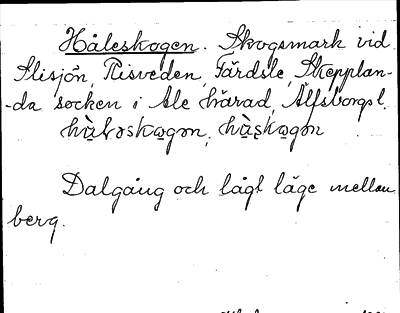 Håleskogen. Skogsmark vid
Slisjön, Risveden, Färdsle, Skepplan-
-da socken i Ale härad, Älfsborgs l.
Dalgång och lågt läge mellan
berg.